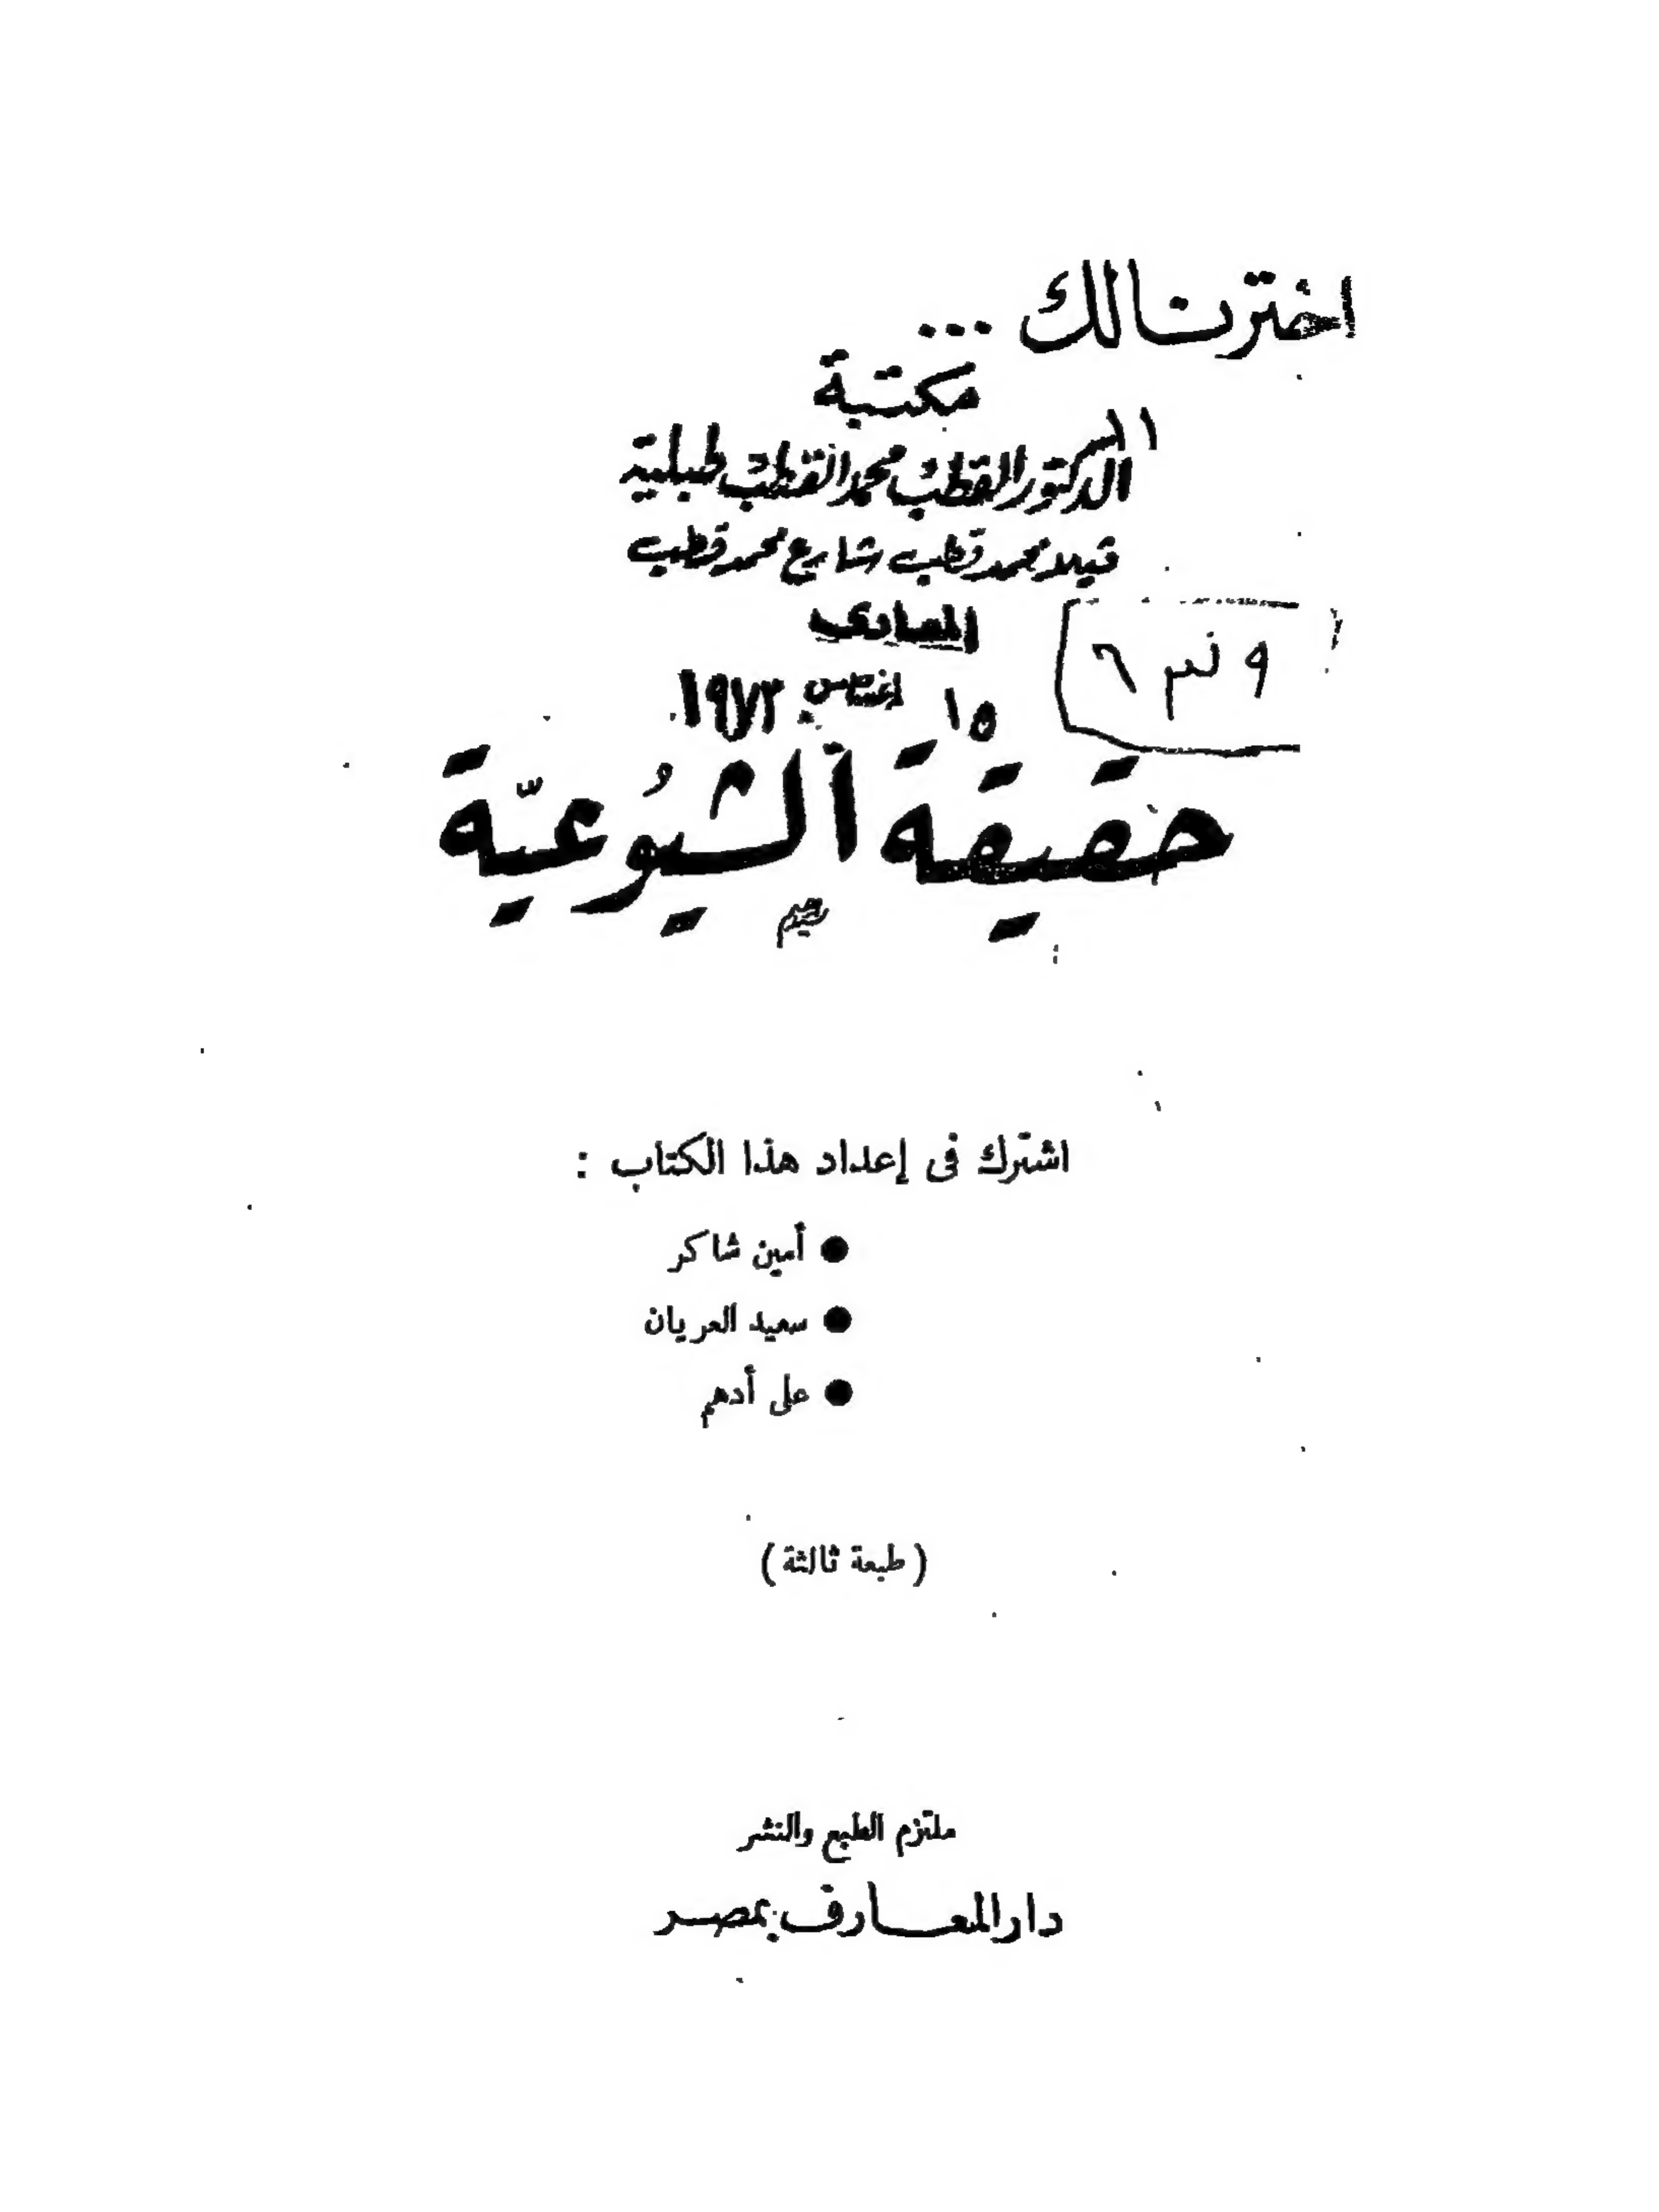 اخترنا لك ...
مكتبة
الدكتور القطب محمد القطب طبلية
فيلا محمد قطب شارع محمد قطب
المعادى
١٥ اغسطس ١٩٧٣
حقيقة الشيوعيّة
اشترك فى إعداد هذا الكتاب :
● أمين شاكر
● سعيد العريان
● على أدهم
(طبعة ثالثة)
ملتزم الطبع والنشر
دار المعارف بمصر